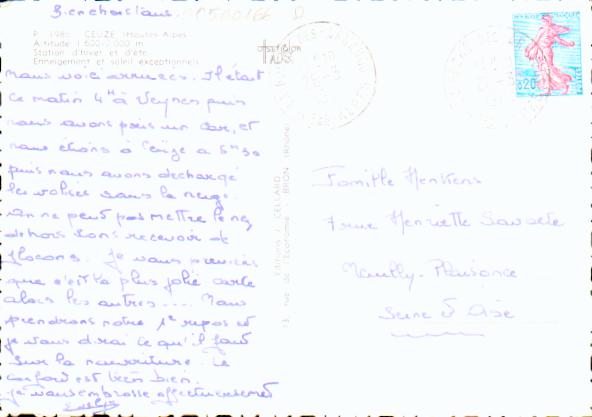 Biens chers tous.
P. 1985 CEUZE (Hautes-Alpes)
Altitude 1.600-2.000 m
Station d'hiver et d'été
Enneigement et soleil exceptionnels
Nous voici arrivées. Il était
ce matin 4H à Veynes puis
nous avons pris un car, et
nous étions à Ceüze a 5H30
puis nous avons déchargé
les valises sous la neige.
On ne peut pas mettre le nez
dehors sans recevoir de
flocons. Je vous préviens
que c'est la plus jolie carte
alors les autres .... Nous
prendrons notre 1e repas et
je vous dirai ce qu'il faut
sur la nourriture. Le
confort est bien bien.
Je vous embrasse affectueusement
Editions J. CELLARD
13, rue de l'Economie - BRON (Rhône)
0,20
Famille Henkens
7 rue Henriette
Neuilly-Plaisance
Seine & Oise